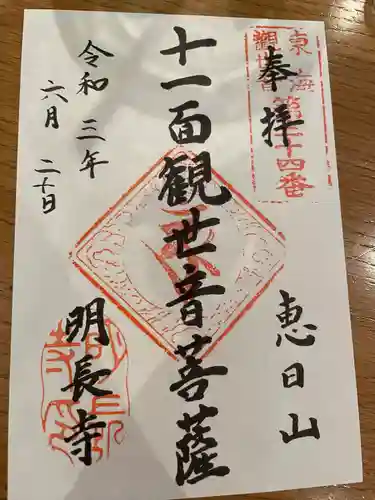 奉拝
東海
観世音
第二十四番
恵日山
十一面観世音菩薩
明長寺
令和三年
六月二十日